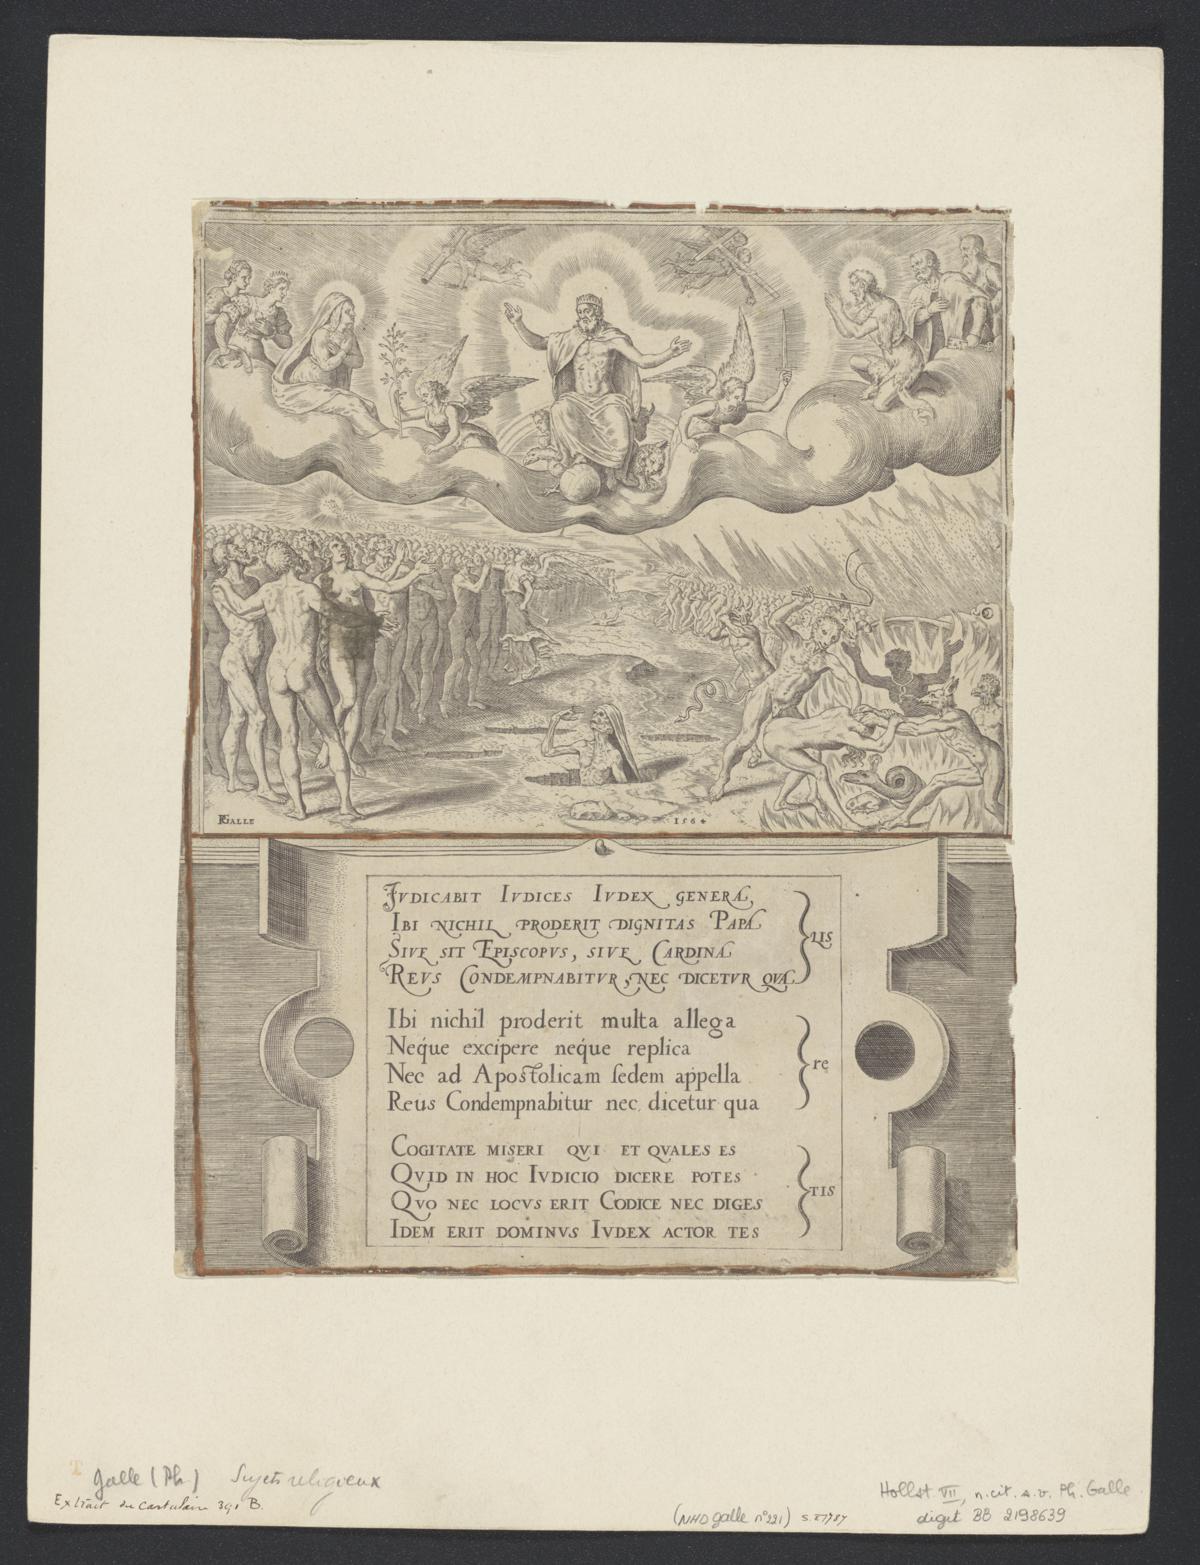 PGALLE
1564
IVDICABIT IVDICES IVDEX GENERA,
IBI NICHIL PRODERIT DIGNITAS PAPA
SIVE SIT EPISCOPVS, SIVE CARDINA
REVS CONDEMPNABITVR, NEC DICETVR QVA
LIS
Ibi nichil proderit multa allega
Neque excipere neque replica
Nec ad Apostolicam sedem appella
Reus Condempnabitur nec dicetur qua
re
COGITATE MISERI QVI ET QVALES ES
QVID IN HOC IVDICIO DICERE POTES
QVO NEC LOCVS ERIT CODICE NEC DIGES
IDEM ERIT DOMINVS IVDEX ACTOR TES
TIS
T
Galle (Ph.) Sujets religieux
Extrait du cartulaire 391 B.
(NHD Galle n° 221)
Hollst VII, n. cit. s.v. Ph. Galle
digit BB 2198639